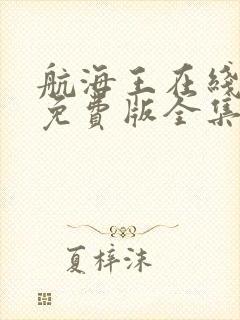 航海王在线
免費版全集
夏梓沫